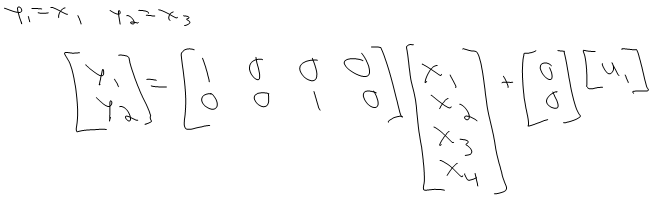 y₁=x₁ y₂=x₃
[y₁ y₂] = [1 0 0 0; 0 0 1 0] [x₁ x₂ x₃ x₄] + [0 0] [u₁]